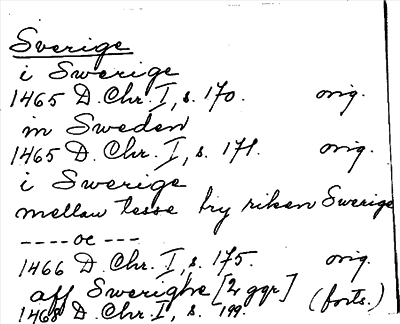 Swerige
i Swerige
1465 D. Chr. I, s. 170. orig.
in Sweden
1465 D. Chr. I, s. 171. orig.
i Swerige
mellan tesse try riken Swerige
---- oc ---
1466 D. Chr. I, s. 175. orig.
aff Swerighe [2 ggr] (forts.)
1468 D. Chr. I, s. 199.